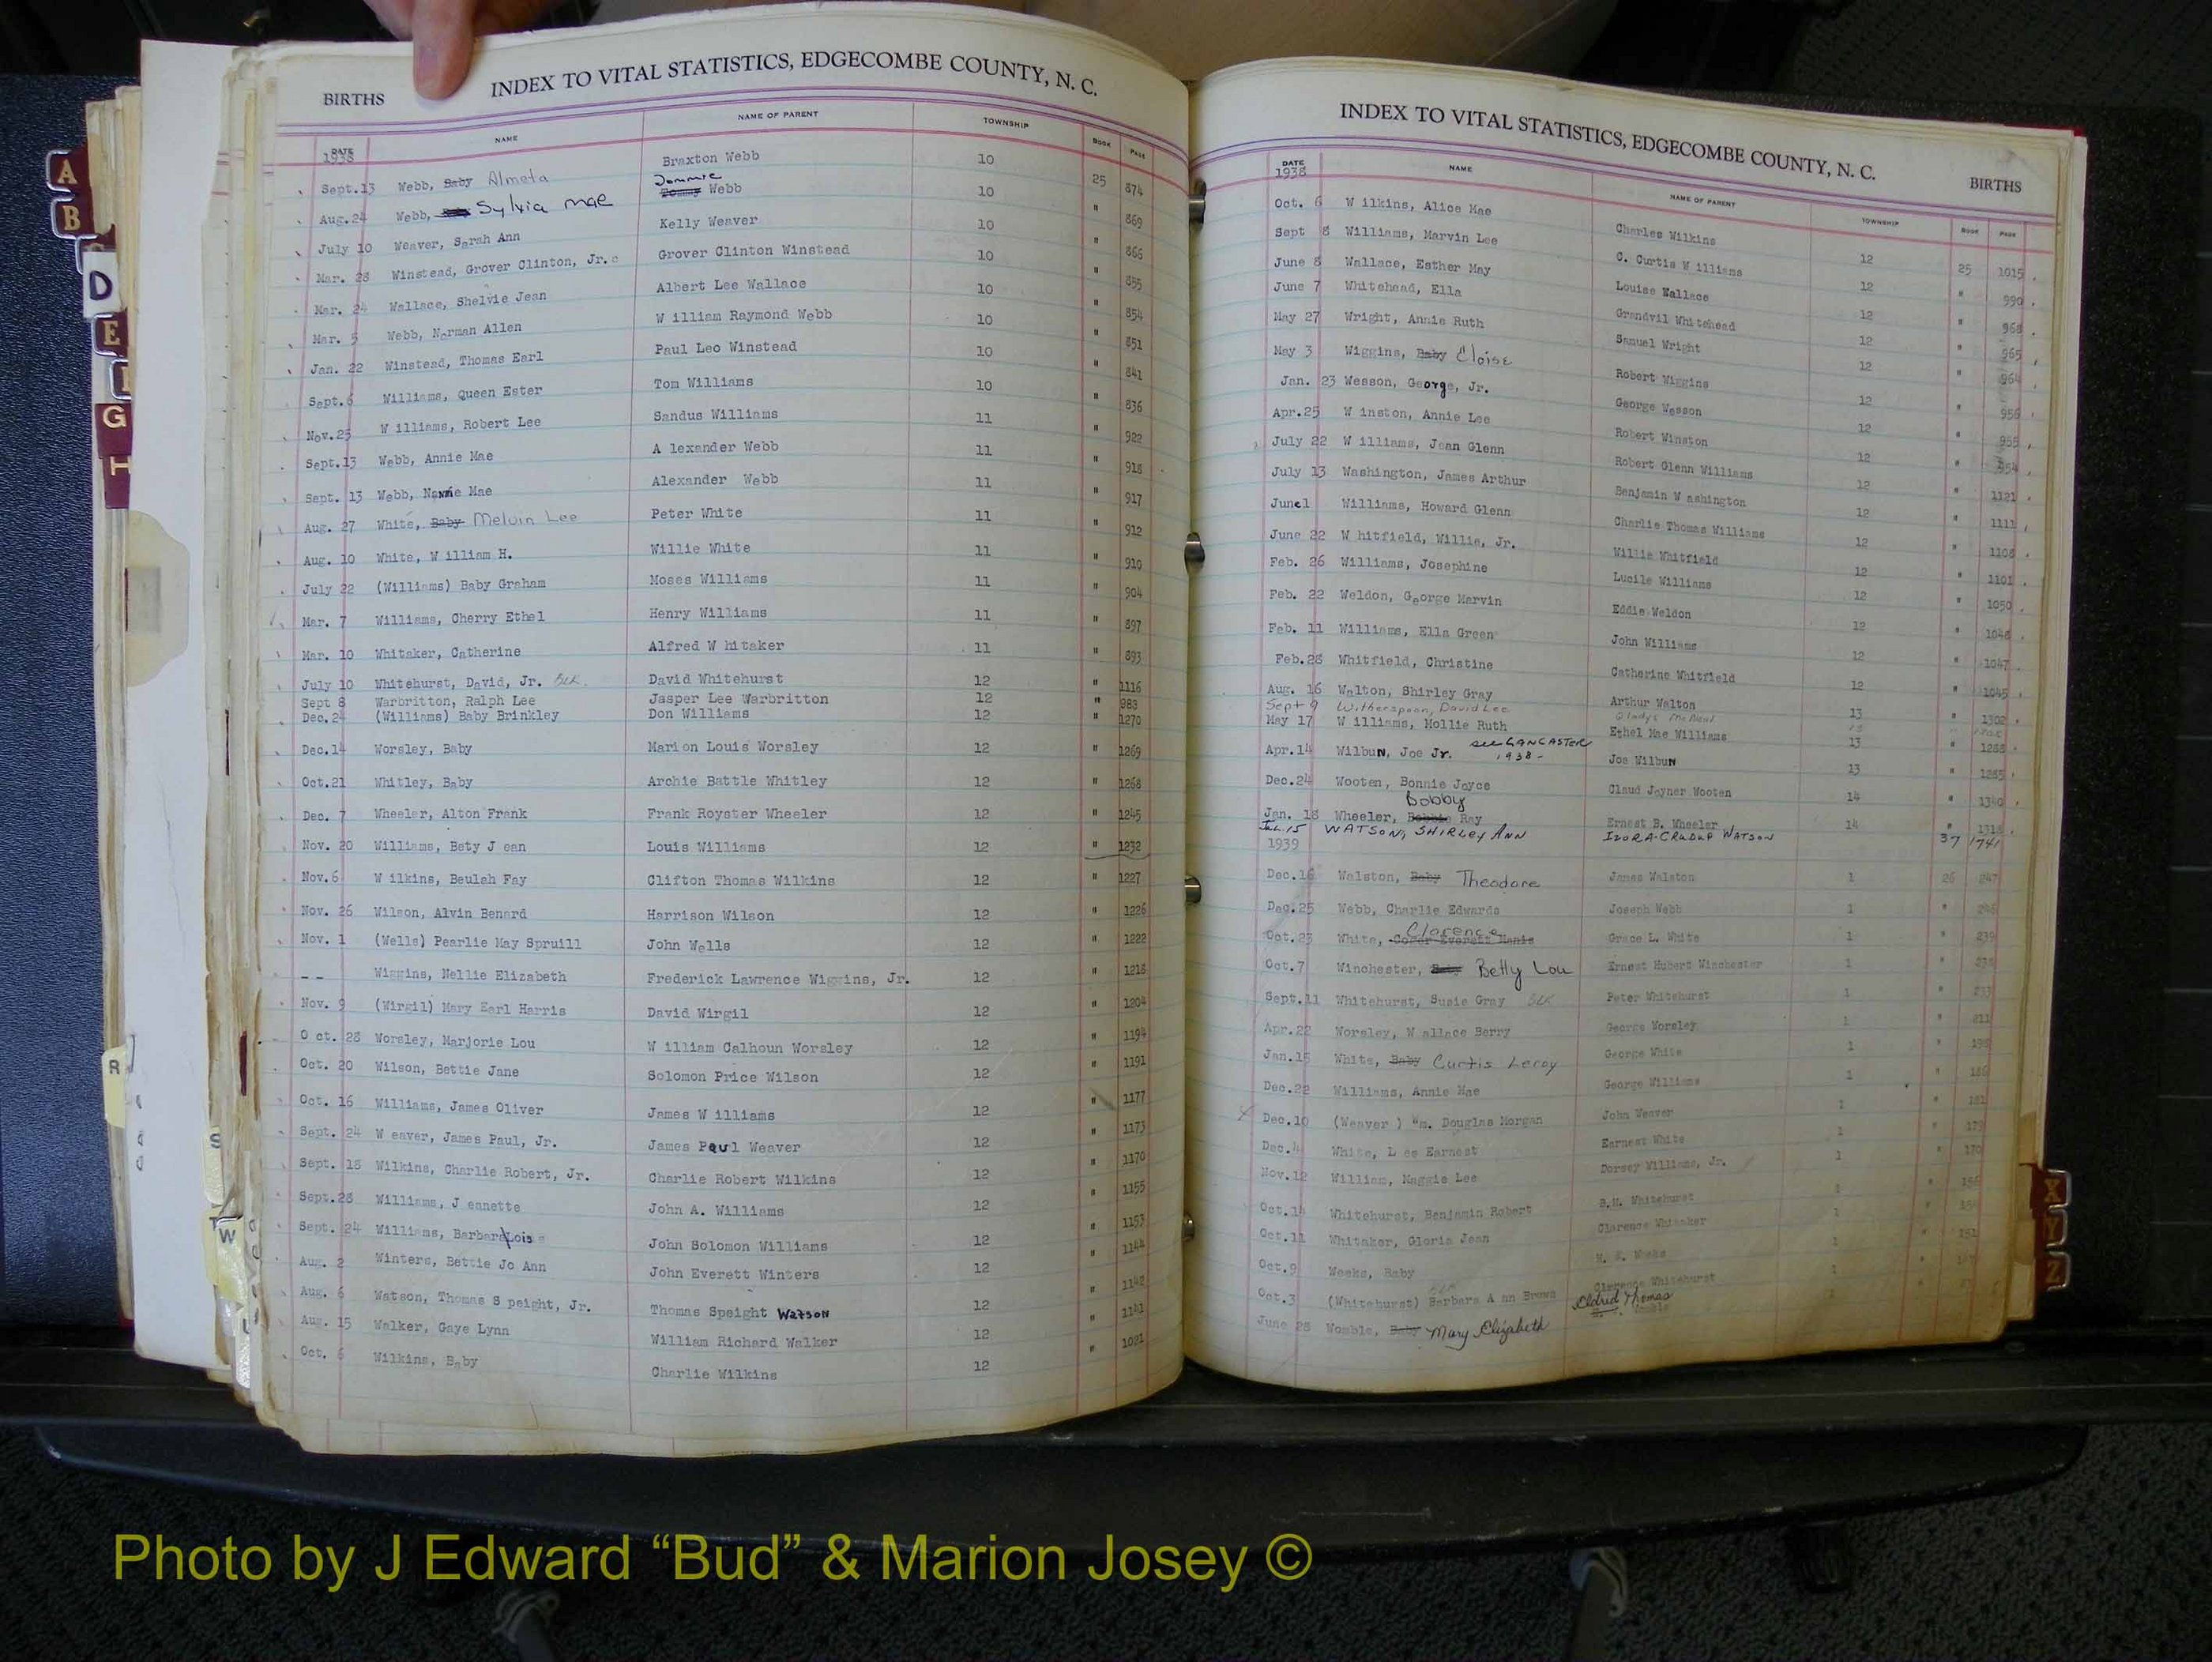 BIRTHS INDEX TO VITAL STATISTICS, EDGECOMBE COUNTY, N. C.
DATE NAME NAME OF PARENT TOWNSHIP BOOK PAGE
1938
Sept.13 Webb, Baby Almeta Braxton Webb 10 25 874
Aug.24 Webb, Sylvia Mae Jommie Webb 10 " 869
July 10 Weaver, Sarah Ann Kelly Weaver 10 " 866
Mar. 28 Winstead, Grover Clinton, Jr. Grover Clinton Winstead 10 " 855
Mar. 24 Wallace, Shelvie Jean Albert Lee Wallace 10 " 854
Mar. 5 Webb, Norman Allen William Raymond Webb 10 " 851
Jan. 22 Winstead, Thomas Earl Paul Leo Winstead 10 " 841
Sept.6 Williams, Queen Ester Tom Williams 10 " 836
Nov.25 Williams, Robert Lee Sandus Williams 11 " 922
Sept.13 Webb, Annie Mae Alexander Webb 11 " 918
Sept. 13 Webb, Nannie Mae Alexander Webb 11 " 917
Aug. 27 White, Baby Melvin Lee Peter White 11 " 912
Aug. 10 White, William H. Willie White 11 " 910
July 22 (Williams) Baby Graham Moses Williams 11 " 904
Mar. 7 Williams, Cherry Ethel Henry Williams 11 " 897
Mar. 10 Whitaker, Catherine Alfred Whitaker 11 " 893
July 10 Whitehurst, David, Jr. BLK. David Whitehurst 12 " 1116
Sept 8 Warbritton, Ralph Lee Jasper Lee Warbritton 12 " 983
Dec.24 (Williams) Baby Brinkley Don Williams 12 " 1270
Dec.14 Worsley, Baby Marion Louis Worsley 12 " 1269
Oct.21 Whitley, Baby Archie Battle Whitley 12 " 1268
Dec. 7 Wheeler, Alton Frank Frank Royster Wheeler 12 " 1245
Nov. 20 Williams, Bety Jean Louis Williams 12 " 1232
Nov.6 Wilkins, Beulah Fay Clifton Thomas Wilkins 12 " 1227
Nov. 26 Wilson, Alvin Benard Harrison Wilson 12 " 1226
Nov. 1 (Wells) Pearlie May Spruill John Wells 12 " 1222
-- Wiggins, Nellie Elizabeth Frederick Lawrence Wiggins, Jr. 12 " 1218
Nov. 9 (Wirgil) Mary Earl Harris David Wirgil 12 " 1204
Oct. 28 Worsley, Marjorie Lou William Calhoun Worsley 12 " 1194
Oct. 20 Wilson, Bettie Jane Solomon Price Wilson 12 " 1191
Oct. 16 Williams, James Oliver James Williams 12 " 1177
Sept. 24 Weaver, James Paul, Jr. James Paul Weaver 12 " 1173
Sept. 18 Wilkins, Charlie Robert, Jr. Charlie Robert Wilkins 12 " 1170
Sept.28 Williams, Jeannette John A. Williams 12 " 1155
Sept. 24 Williams, Barbara Lois John Solomon Williams 12 " 1153
Aug. 2 Winters, Bettie Jo Ann John Everett Winters 12 " 1144
Aug. 6 Watson, Thomas Speight, Jr. Thomas Speight Watson 12 " 1142
Aug. 15 Walker, Gaye Lynn William Richard Walker 12 " 1141
Oct. 6 Wilkins, Baby Charlie Wilkins 12 " 1021
INDEX TO VITAL STATISTICS, EDGECOMBE COUNTY, N. C. BIRTHS
DATE NAME NAME OF PARENT TOWNSHIP BOOK PAGE
1938
Oct. 6 Wilkins, Alice Mae Charles Wilkins 12 25 1015
Sept 8 Williams, Marvin Lee C. Curtis Williams 12 " 990
June 8 Wallace, Esther May Louise Wallace 12 " 968
June 7 Whitehead, Ella Grandvil Whitehead 12 " 965
May 27 Wright, Annie Ruth Samuel Wright 12 " 964
May 3 Wiggins, Baby Eloise Robert Wiggins 12 " 956
Jan. 23 Wesson, George, Jr. George Wesson 12 " 955
Apr.25 Winston, Annie Lee Robert Winston 12 " 954
July 22 Williams, Jean Glenn Robert Glenn Williams 12 " 1121
July 13 Washington, James Arthur Benjamin Washington 12 " 1111
June1 Williams, Howard Glenn Charlie Thomas Williams 12 " 1108
June 22 Whitfield, Willie, Jr. Willie Whitfield 12 " 1101
Feb. 26 Williams, Josephine Lucile Williams 12 " 1050
Feb. 22 Weldon, George Marvin Eddie Weldon 12 " 1048
Feb. 11 Williams, Ella Green John Williams 12 " 1047
Feb.28 Whitfield, Christine Catherine Whitfield 12 " 1045
Aug. 16 Walton, Shirley Gray Arthur Walton 13 " 1302
Sept 9 Witherspoon, David Lee Gladys 13
May 17 Williams, Mollie Ruth Ethel Mae Williams 13 " 1288
Apr.14 Wilbun, Joe Jr. see LANCASTER 1938- Joe Wilbun 13 " 1285
Dec.24 Wooten, Bonnie Joyce Claud Joyner Wooten 14 " 1340
Jan. 18 Wheeler, Bobby Ray Ernest B. Wheeler 14 " 1318
Jul.15 WATSON, SHIRLEY ANN IZORA CRUDUP WATSON 37 1741
1939
Dec.16 Walston, Baby Theodore James Walston 1 26 247
Dec.25 Webb, Charlie Edwards Joseph Webb 1 " 246
Oct.23 White, Clarence Grace L. White 1 " 239
Oct.7 Winchester, Baby Betty Lou Ernest Hubert Winchester 1 "
Sept.11 Whitehurst, Susie Gray BLK Peter Whitehurst 1 "
Apr.22 Worsley, Wallace Berry George Worsley 1 " 211
Jan.15 White, Baby Curtis Leroy George White 1 "
Dec.22 Williams, Annie Mae George Williams 1 "
Dec.10 (Weaver) Wm. Douglas Morgan John Weaver 1 " 181
Dec.4 White, Les Earnest Earnest White 1 " 179
Nov.12 William, Maggie Lee Dorsey Williams, Jr. 1 " 170
Oct.14 Whitehurst, Benjamin Robert Whitehurst 1 "
Oct.11 Whitaker, Gloria Jean Clarence Whitaker 1 "
Oct.9 Weeks, Baby Weeks 1 "
Oct.3 (Whitehurst) Barbara Ann Brown BLK Clarence Whitehurst 1 "
June 28 Womble, Baby Mary Elizabeth Eldred Thomas Womble 1
A
B
D
E
G
H
R
S
T
W
X
Y
Z
Photo by J Edward “Bud” & Marion Josey ©